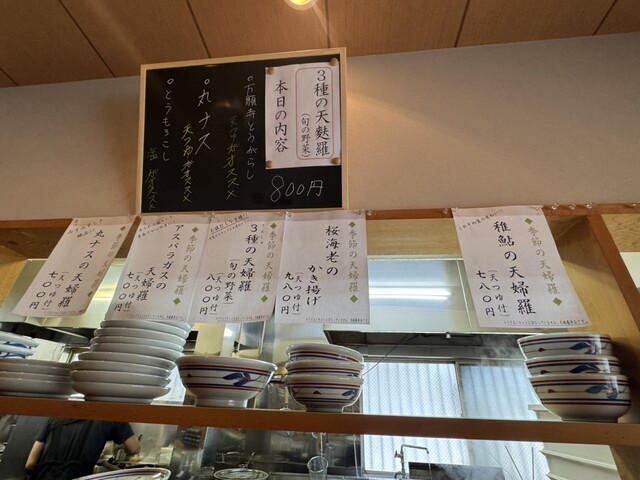 3種の天麩羅
(旬の野菜)
本日の内容
800円
○万願寺とうがらし
天つゆがオススメ
○丸ナス
天つゆがオススメ
○とうもろこし
塩がオススメ
◆季節の天婦羅◆
稚鮎の天婦羅
(天つゆ付)
七八〇円
◆季節の天婦羅◆
桜海老の
かき揚げ
(天つゆ付)
九八〇円
◆季節の天婦羅◆
3種の天婦羅
(旬の野菜)
(天つゆ付)
八〇〇円
◆季節の天婦羅◆
アスパラガスの
天婦羅
(天つゆ付)
七〇〇円
丸ナスの天婦羅
(天つゆ付)
七〇〇円